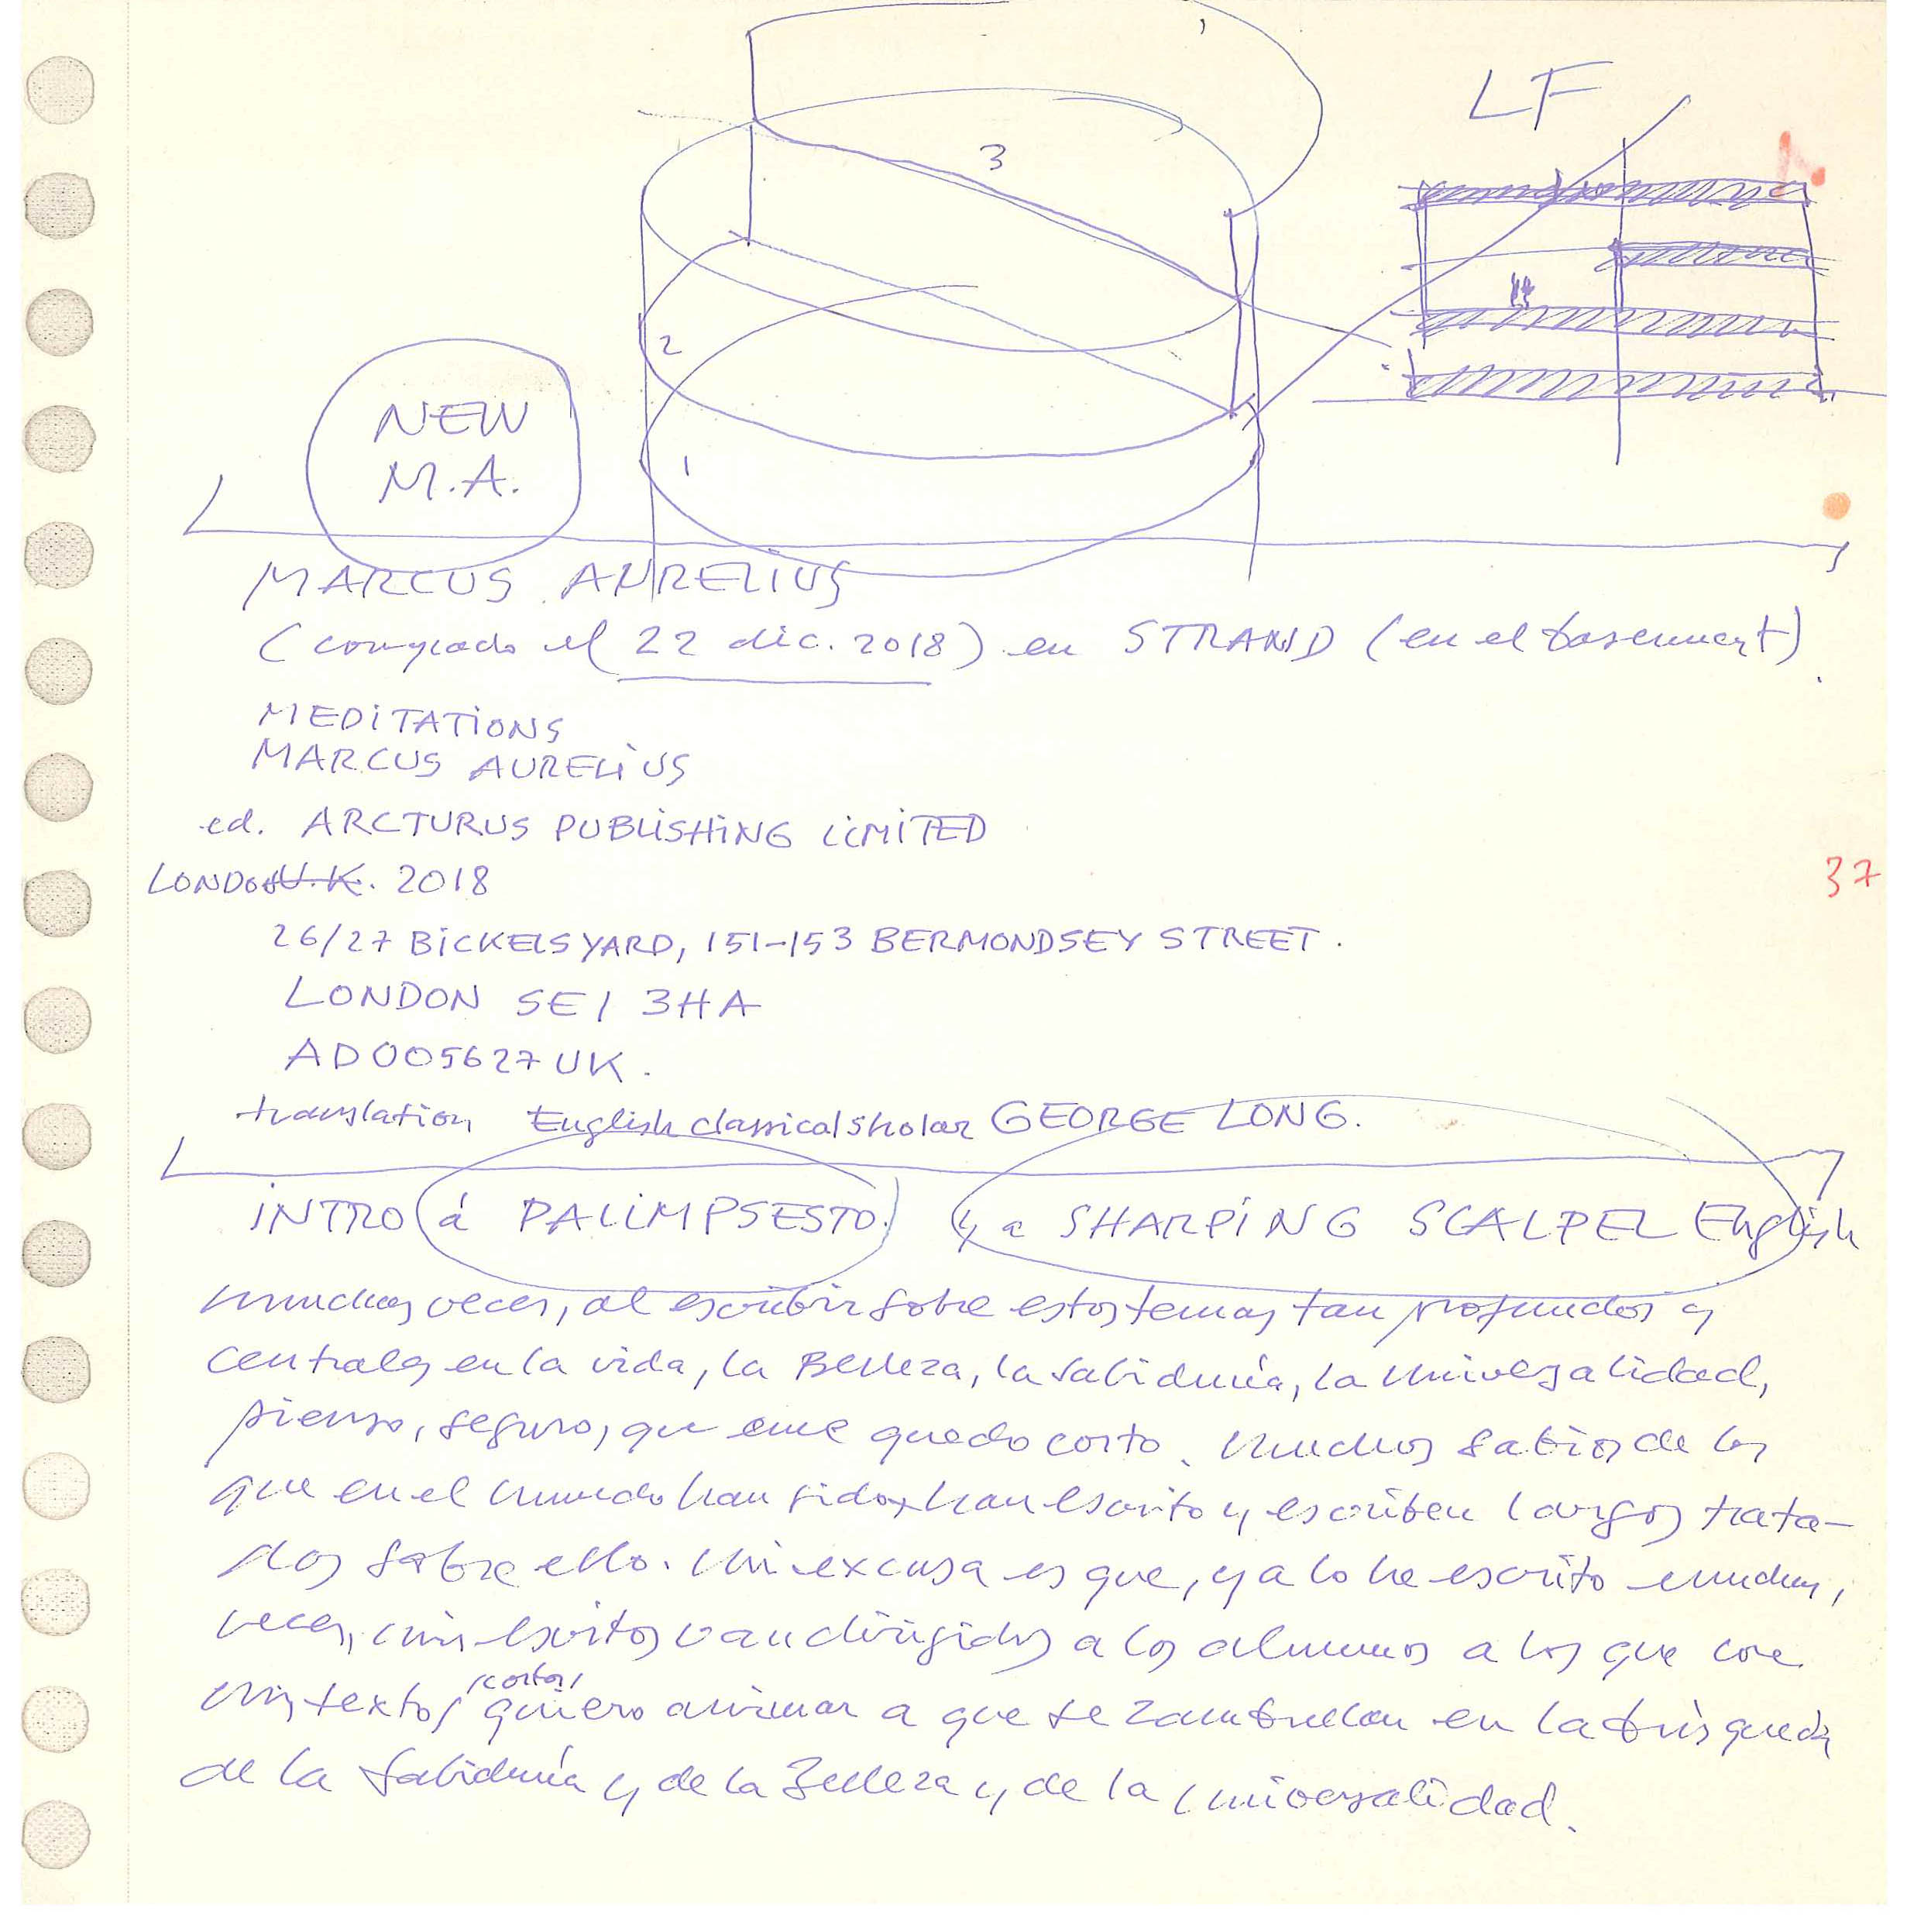 3
2
1
LF
NEW
M.A.
MARCUS AURELIUS
(comprado el 22 dic. 2018) en STRAND (en el basement).
MEDITATIONS
MARCUS AURELIUS
ed. ARCTURUS PUBLISHING LIMITED
LONDON U.K. 2018
37
26/27 BICKELS YARD, 151-153 BERMONDSEY STREET.
LONDON SE1 3HA
AD005627UK.
translation English classical sholar GEORGE LONG.
INTRO a PALIMPSESTO. y a SHARPING SCALPEL English
muchas veces, al escribir sobre estos temas tan profundos y
centrales en la vida, la Belleza, la Sabiduría, la Universalidad,
pienso, seguro, que me quedo corto. muchos sabios de los
que en el mundo han sido, han escrito y escriben largos trata-
dos sobre ello. mi excusa es que, ya lo he escrito muchas,
veces, mis escritos van dirigidos a los alumnos a los que con
mis textos (cortos) quiero animar a que se zambullan en la búsqueda
de la Sabiduría y de la Belleza y de la Universalidad.